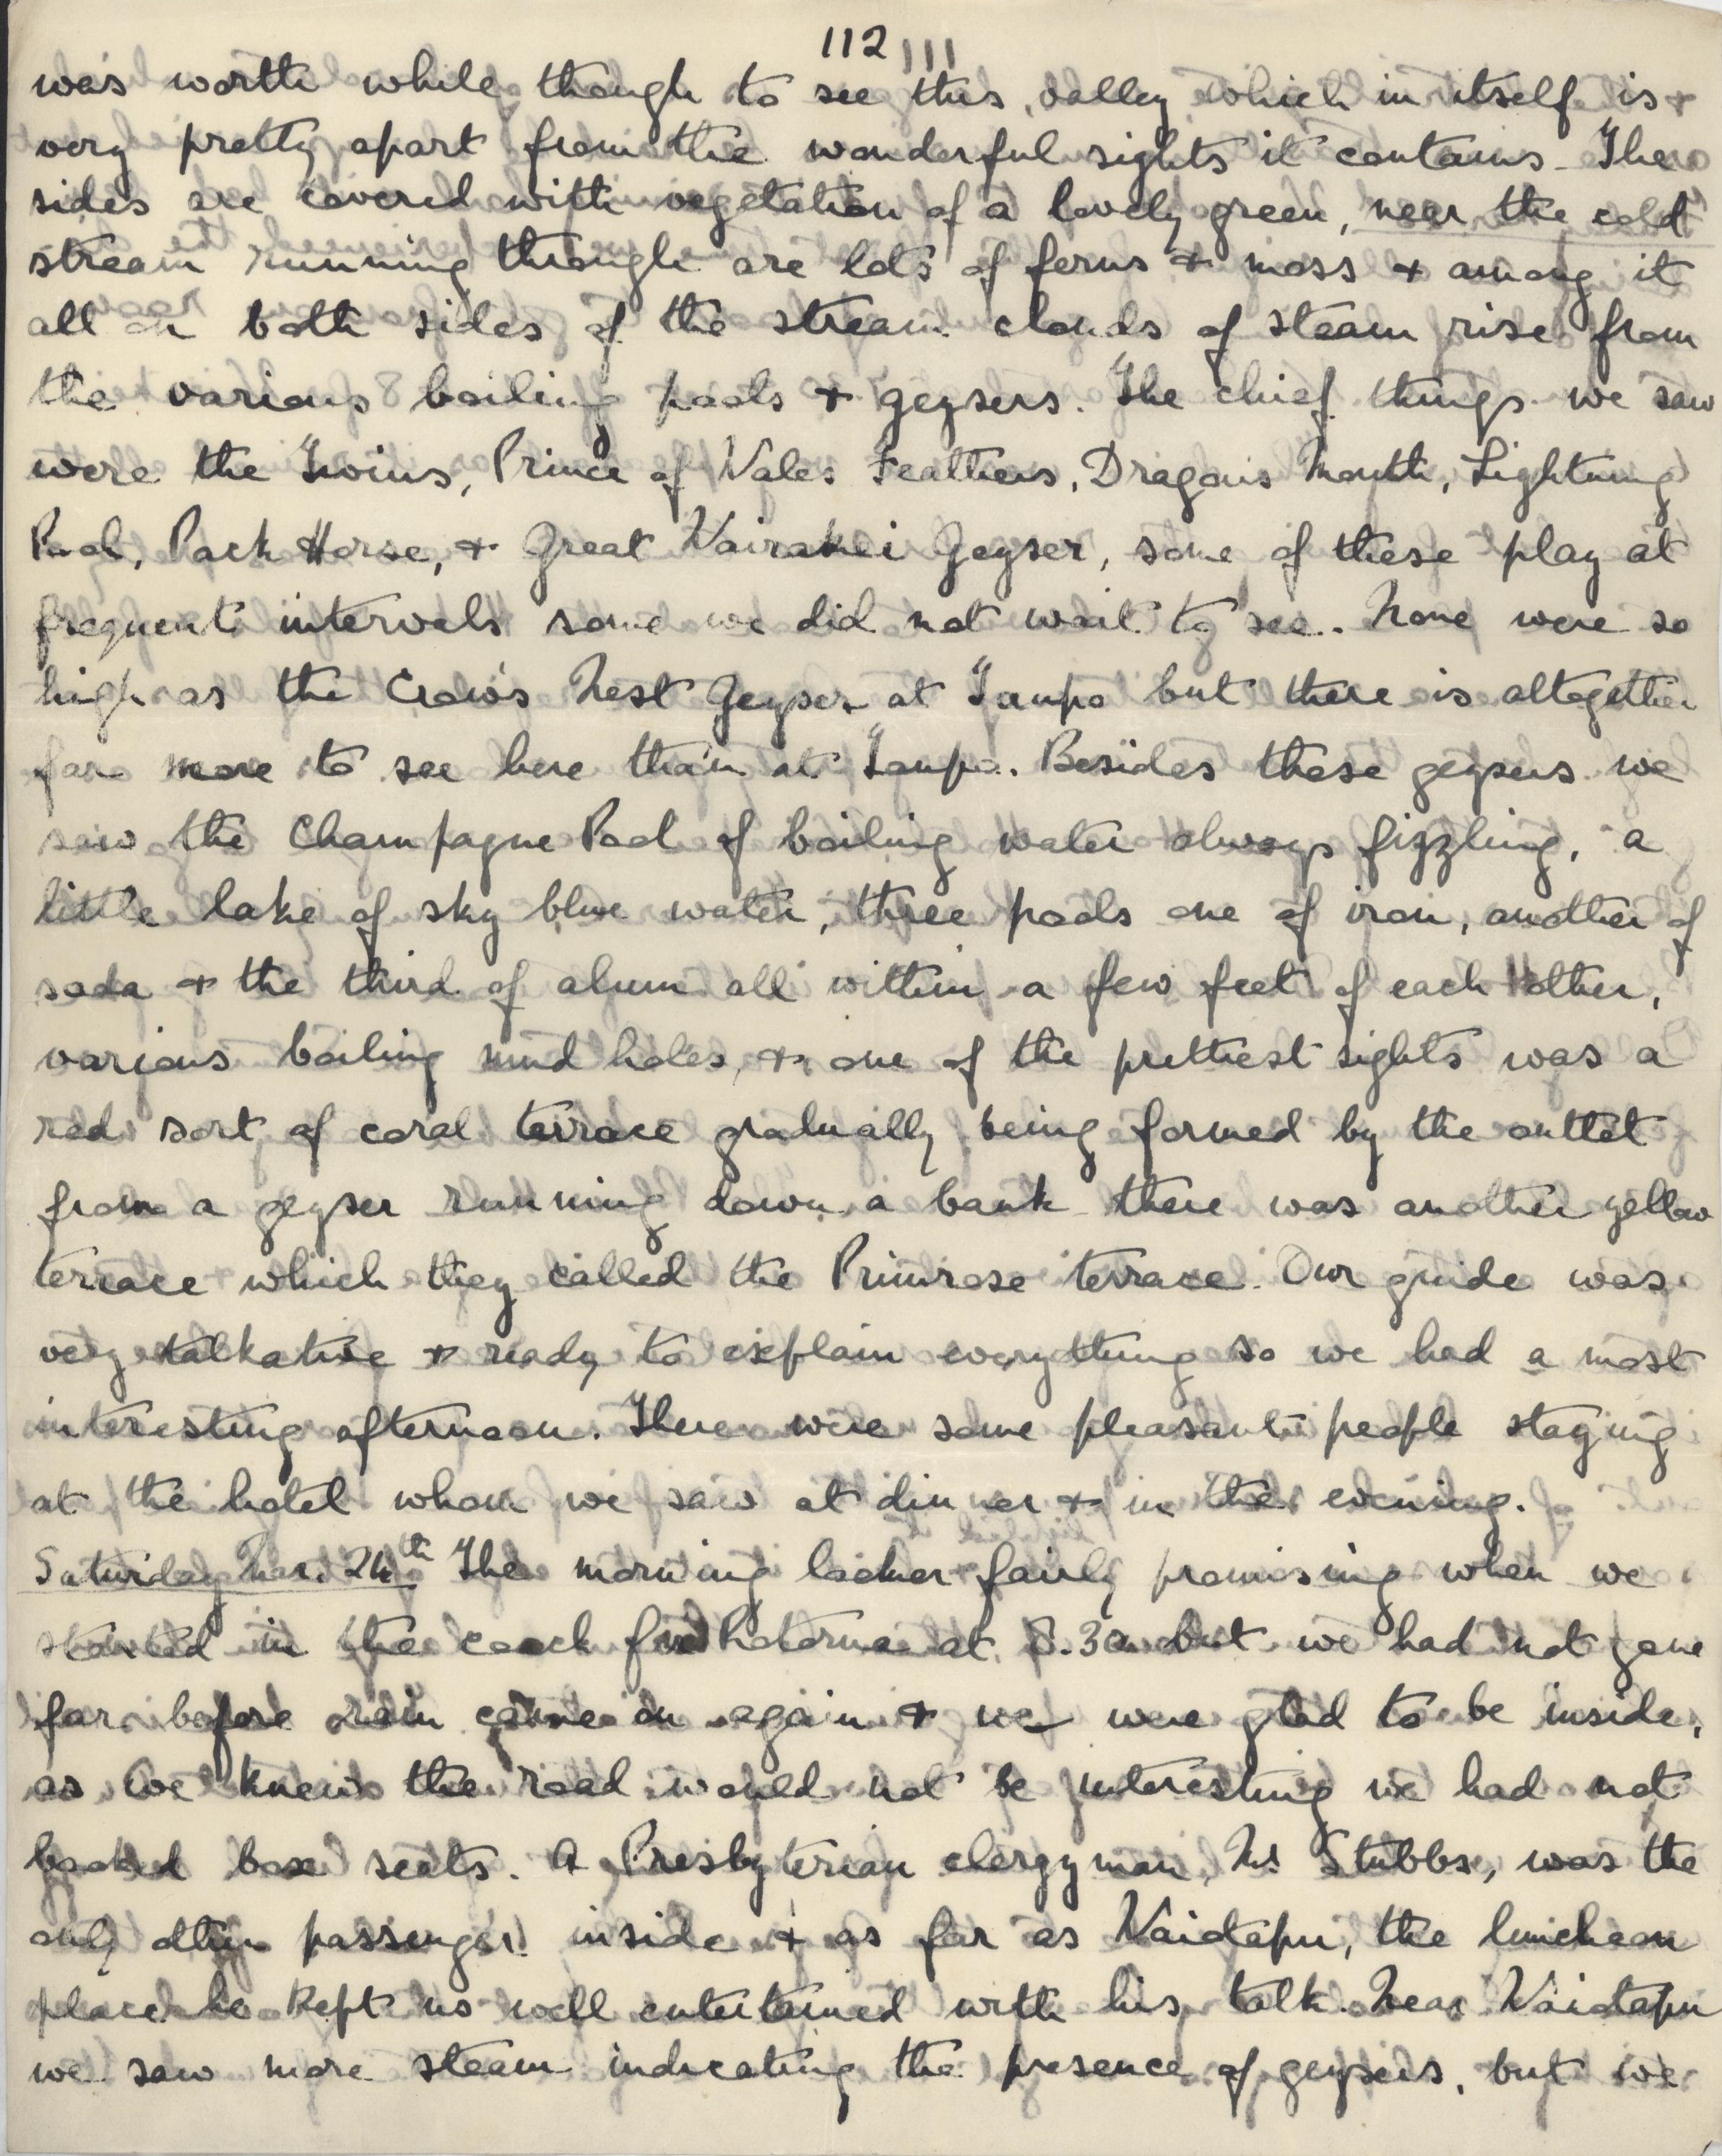 112
was worth while though to see this valley which in itself is
very pretty apart from the wonderful sights it contains. The
sides are covered with vegetation of a lovely green, near the cold
stream running through are lots of ferns & moss & among it
all on both sides of the stream clouds of steam rise from
the various boiling pools & geysers. The chief things we saw
were the Twins, Prince of Wales Feathers, Dragons Mouth, Lightning
Pool, Pack Horse, & Great Wairakei Geyser, some of these play at
frequent intervals some we did not wait to see. None were so
high as the Crow's Nest Geyser at Taupo but there is altogether
far more to see here than at Taupo. Besides these geysers we
saw the Champagne Pool of boiling water always fizzling, a
little lake of sky blue water, three pools one of iron, another of
soda & the third of alum all within a few feet of each other,
various boiling mud holes, & one of the prettiest sights was a
red sort of coral terrace gradually being formed by the outlet
from a geyser running down a bank there was another yellow
terrace which they called the Primrose terrace. Our guide was
very talkative & ready to explain everything so we had a most
interesting afternoon. There were some pleasant people staying
at the hotel whom we saw at dinner & in the evening.
Saturday Mar. 24th The morning looked fairly promising when we
started in the coach for Rotorua at 8.30 but we had not gone
far before rain came on again & we were glad to be inside,
as we knew the road would not be interesting we had not
booked box seats. A Presbyterian clergyman, Mr Stubbs, was the
only other passenger inside & as far as Waiotapu, the luncheon
place he kept us well entertained with his talk. Near Waiotapu
we saw more steam indicating the presence of geysers, but we